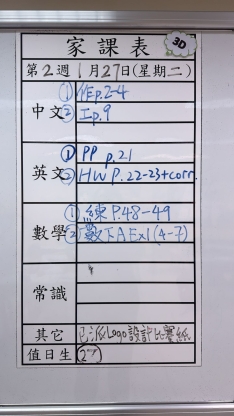 家課表
3D
第2週 1月27日(星期二)
中文 ① 作p.2-4
② 工p.9
英文 ① PP p.21
② HW P.22-23+corr.
數學 ① 練 P.48-49
② 數下A Ex1(4-7)
常識
其它 已派Logo設計比賽紙
值日生